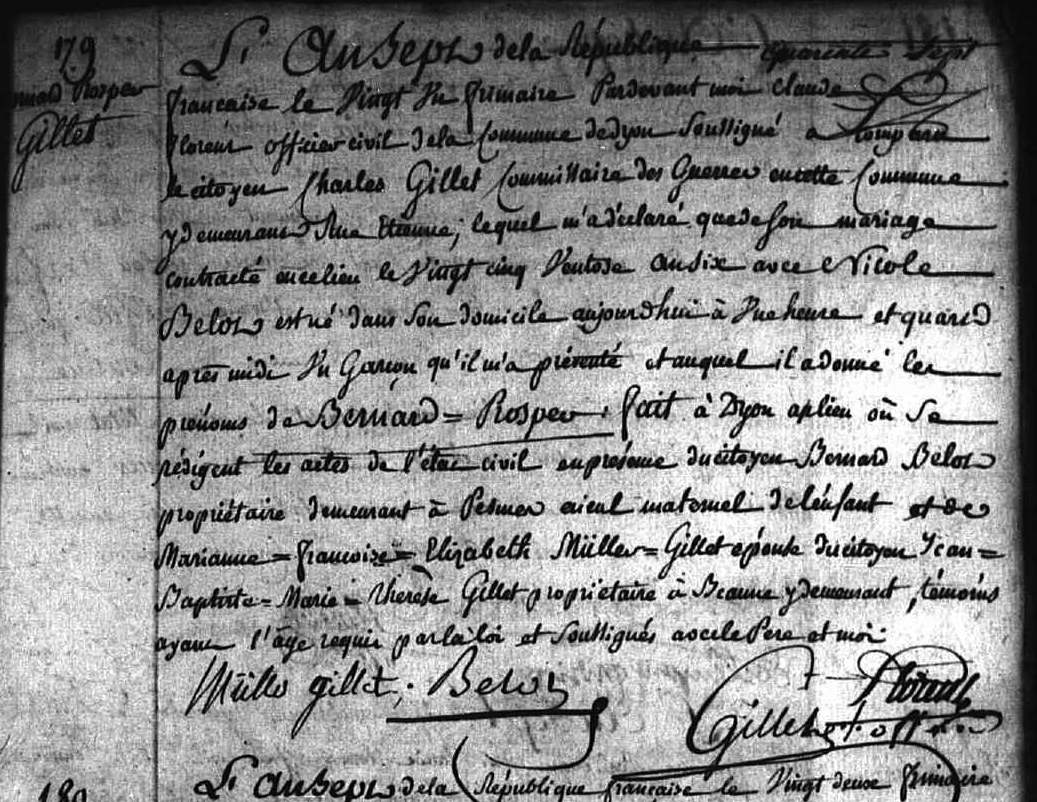 179
Bernard Prosper
Gillet
L'an Sept de la République quarente Sept
française le Vingt Un frimaire Pardevant moi Claude
florent officier civil de la Commune de dijon Soussigné a Comparu
le citoyen Charles Gillet Commissaire des Guerres encette Commune
y demeurant Rue Etienne, lequel m'a déclaré que de Son mariage
contracté en ce lieu le Vingt cinq Ventose an Six avec Nicole
Belot est né dans Son domicile aujourdhui à Une heure et quard
après midi Un Garçon qu'il m'a présenté et auquel il a donné les
prénoms de Bernard = Prosper. fait à Dijon aplieu où Se
rédigent les actes de l'état civil en présence du citoyen Bernard Belot
propriétaire demeurant à Pesmes aieul maternel de l'enfant et de
Marianne = françoise = Elizabeth Müller = Gillet épouse du citoyen Jean =
Baptiste = Marie = Thérèse Gillet propriétaire à Beaune y demeurant, témoins
ayant l'âge requis par la loi et Soussignés avec le Pere et moi
Müller gillet. Belot florent
Gillet off.
180 L'an Sept de la République française le Vingt deux frimaire